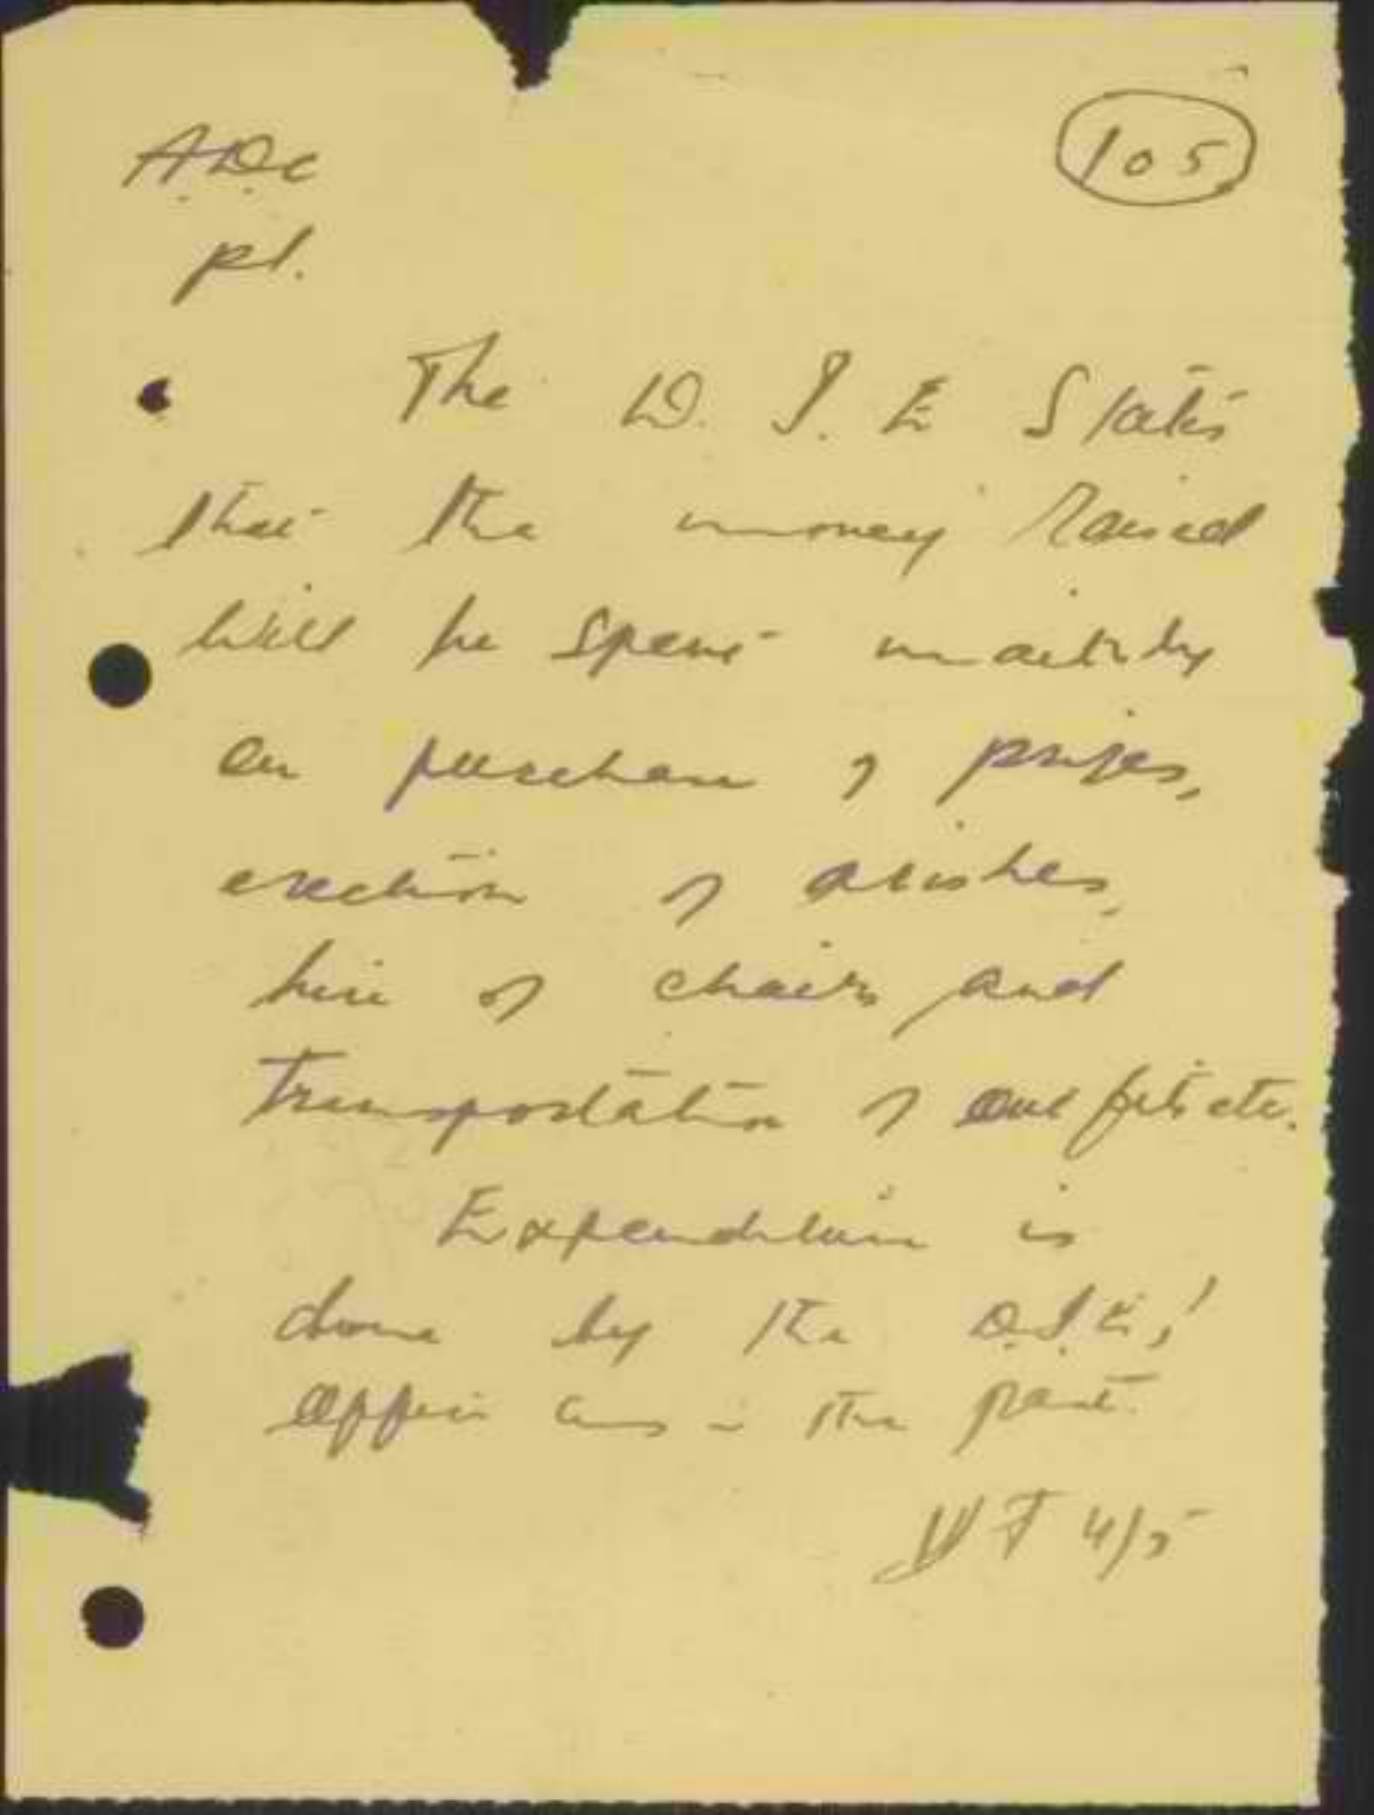 A.D.C
105
pl.
The D. I. E States
that the money raised
will be spent mainly
on purchase of prizes,
erection of arishes,
hire of chairs and
transportation of outfits etc.
Expenditure is
done by the D.I.E's
office as in the past.
4/5